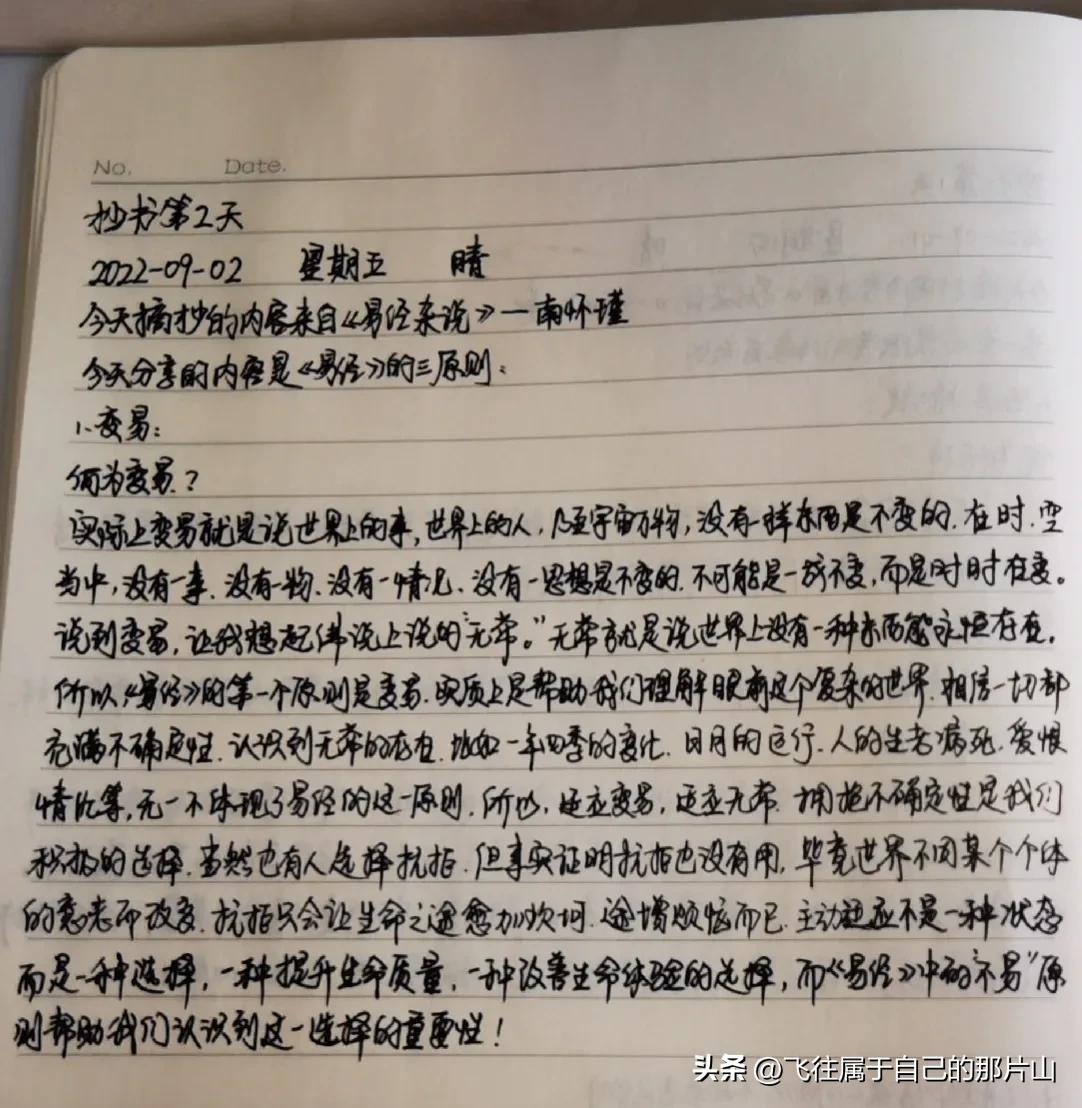 No. Date.
抄书第2天
2022-09-02 星期五 晴
今天摘抄的内容来自《易经杂说》—南怀瑾
今天分享的内容是《易经》的三原则:
1、变易:
何为变易?
实际上变易就是说世界上的事,世界上的人,乃至宇宙万物,没有一样东西是不变的.在时.空
当中,没有一事.没有一物.没有一情况、没有一思想是不变的.不可能是一桥不变,而是时时在变。
说到变易,让我想起佛说上说的"无常。"无常就是说世界上没有一种东西能永恒存在.
所以《易经》的第一个原则是变易.实质上是帮助我们理解眼前这个复杂的世界.相信一切都
充满不确定性.认识到无常的存在.比如一年四季的变化.日月的运行.人的生老病死.爱恨
情仇等,无一不体现了易经的这一原则.所以,适应变易,适应无常.拥抱不确定性是我们
积极的选择.当然也有人选择抗拒.但事实证明抗拒也没有用.毕竟世界不因某个个体
的意志而改变.抗拒只会让生命之途愈加坎坷.途增烦恼而已.主动适应不是一种状态
而是一种选择,一种提升生命质量,一种改善生命体验的选择,而《易经》中的"不易"原
则帮助我们认识到这一选择的重要性!
头条 @飞往属于自己的那片山